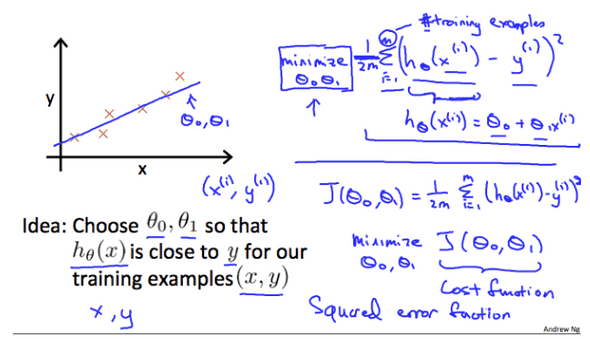 y
x
θ₀, θ₁
(x⁽ⁱ⁾, y⁽ⁱ⁾)
Idea: Choose θ₀, θ₁ so that
hθ(x) is close to y for our
training examples (x, y)
x, y
#training examples
minimize θ₀ θ₁ 1/2m Σᵢ₌₁ᵐ (hθ(x⁽ⁱ⁾) - y⁽ⁱ⁾)²
hθ(x⁽ⁱ⁾) = θ₀ + θ₁x⁽ⁱ⁾
J(θ₀, θ₁) = 1/2m Σᵢ₌₁ᵐ (hθ(x⁽ⁱ⁾) - y⁽ⁱ⁾)²
minimize θ₀, θ₁ J(θ₀, θ₁)
Cost function
Squared error faction
Andrew Ng